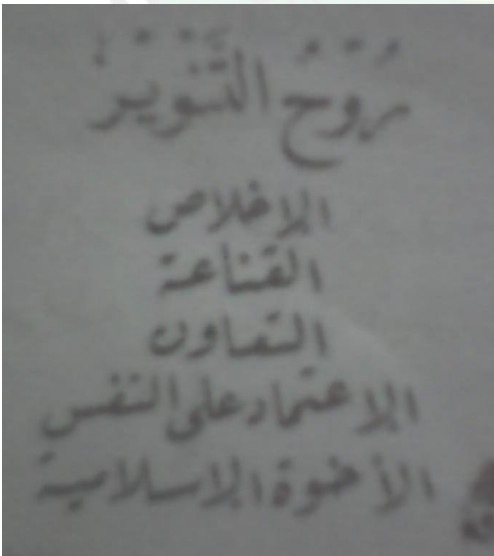 رُوْحُ التَّنْوِيْرِ
الإخلاص
القناعة
التعاون
الاعتماد على النفس
الأخوة الإسلامية